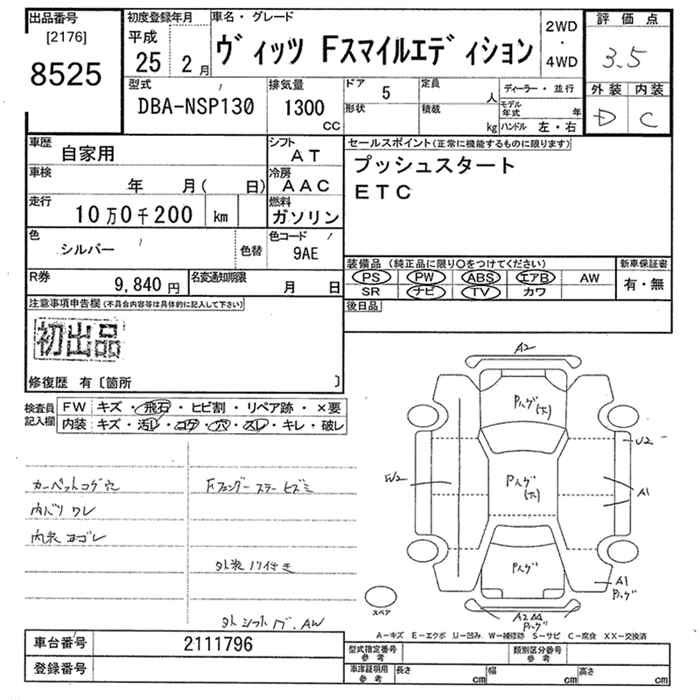 出品番号
[2176]
8525
初度登録年月
平成
25 2月
車名・グレード
ヴィッツ Fスマイルエディション
2WD
・
4WD
評価点
3.5
外装 内装
D C
型式
DBA-NSP130
排気量
1300
CC
ドア
5
形状
定員
人
積載
kg
ディーラー・並行
モデル年式 年
ハンドル 左・右
車歴
自家用
シフト
AT
車検
年 月( 日)
冷房
AAC
走行
10万0千200 km
燃料
ガソリン
色
シルバー
色替
色コード
9AE
R券
9,840円
名変通知期限
月 日
セールスポイント(正常に機能するものに限ります)
プッシュスタート
ETC
装備品(純正品に限り○をつけてください)
PS PW ABS エアB AW
SR ナビ TV カワ
新車保証書
有・無
後日品
注意事項申告欄(不具合内容等は具体的に記入して下さい)
初出品
修復歴 有〔箇所 〕
検査員記入欄
FW キズ・飛石・ヒビ割・リペア跡・×要
内装 キズ・汚レ・コゲ・穴・スレ・キレ・破レ
カーペットコゲ穴
内バリ ワレ
内装 ヨゴレ
Fフェンダーステーヒズミ
外装
AW
A2
Pハゲ(大)
U2
W2
Pハゲ(大)
A1
Pハゲ
A1
Pハゲ
A2
Pハゲ
スペア
A-キズ E-エクボ U-凹み W-補修跡 S-サビ C-腐食 XX-交換済
車台番号
2111796
登録番号
型式指定番号
参考
類別区分番号
参考
車庫証明用
参考
長さ cm
幅 cm
高さ cm